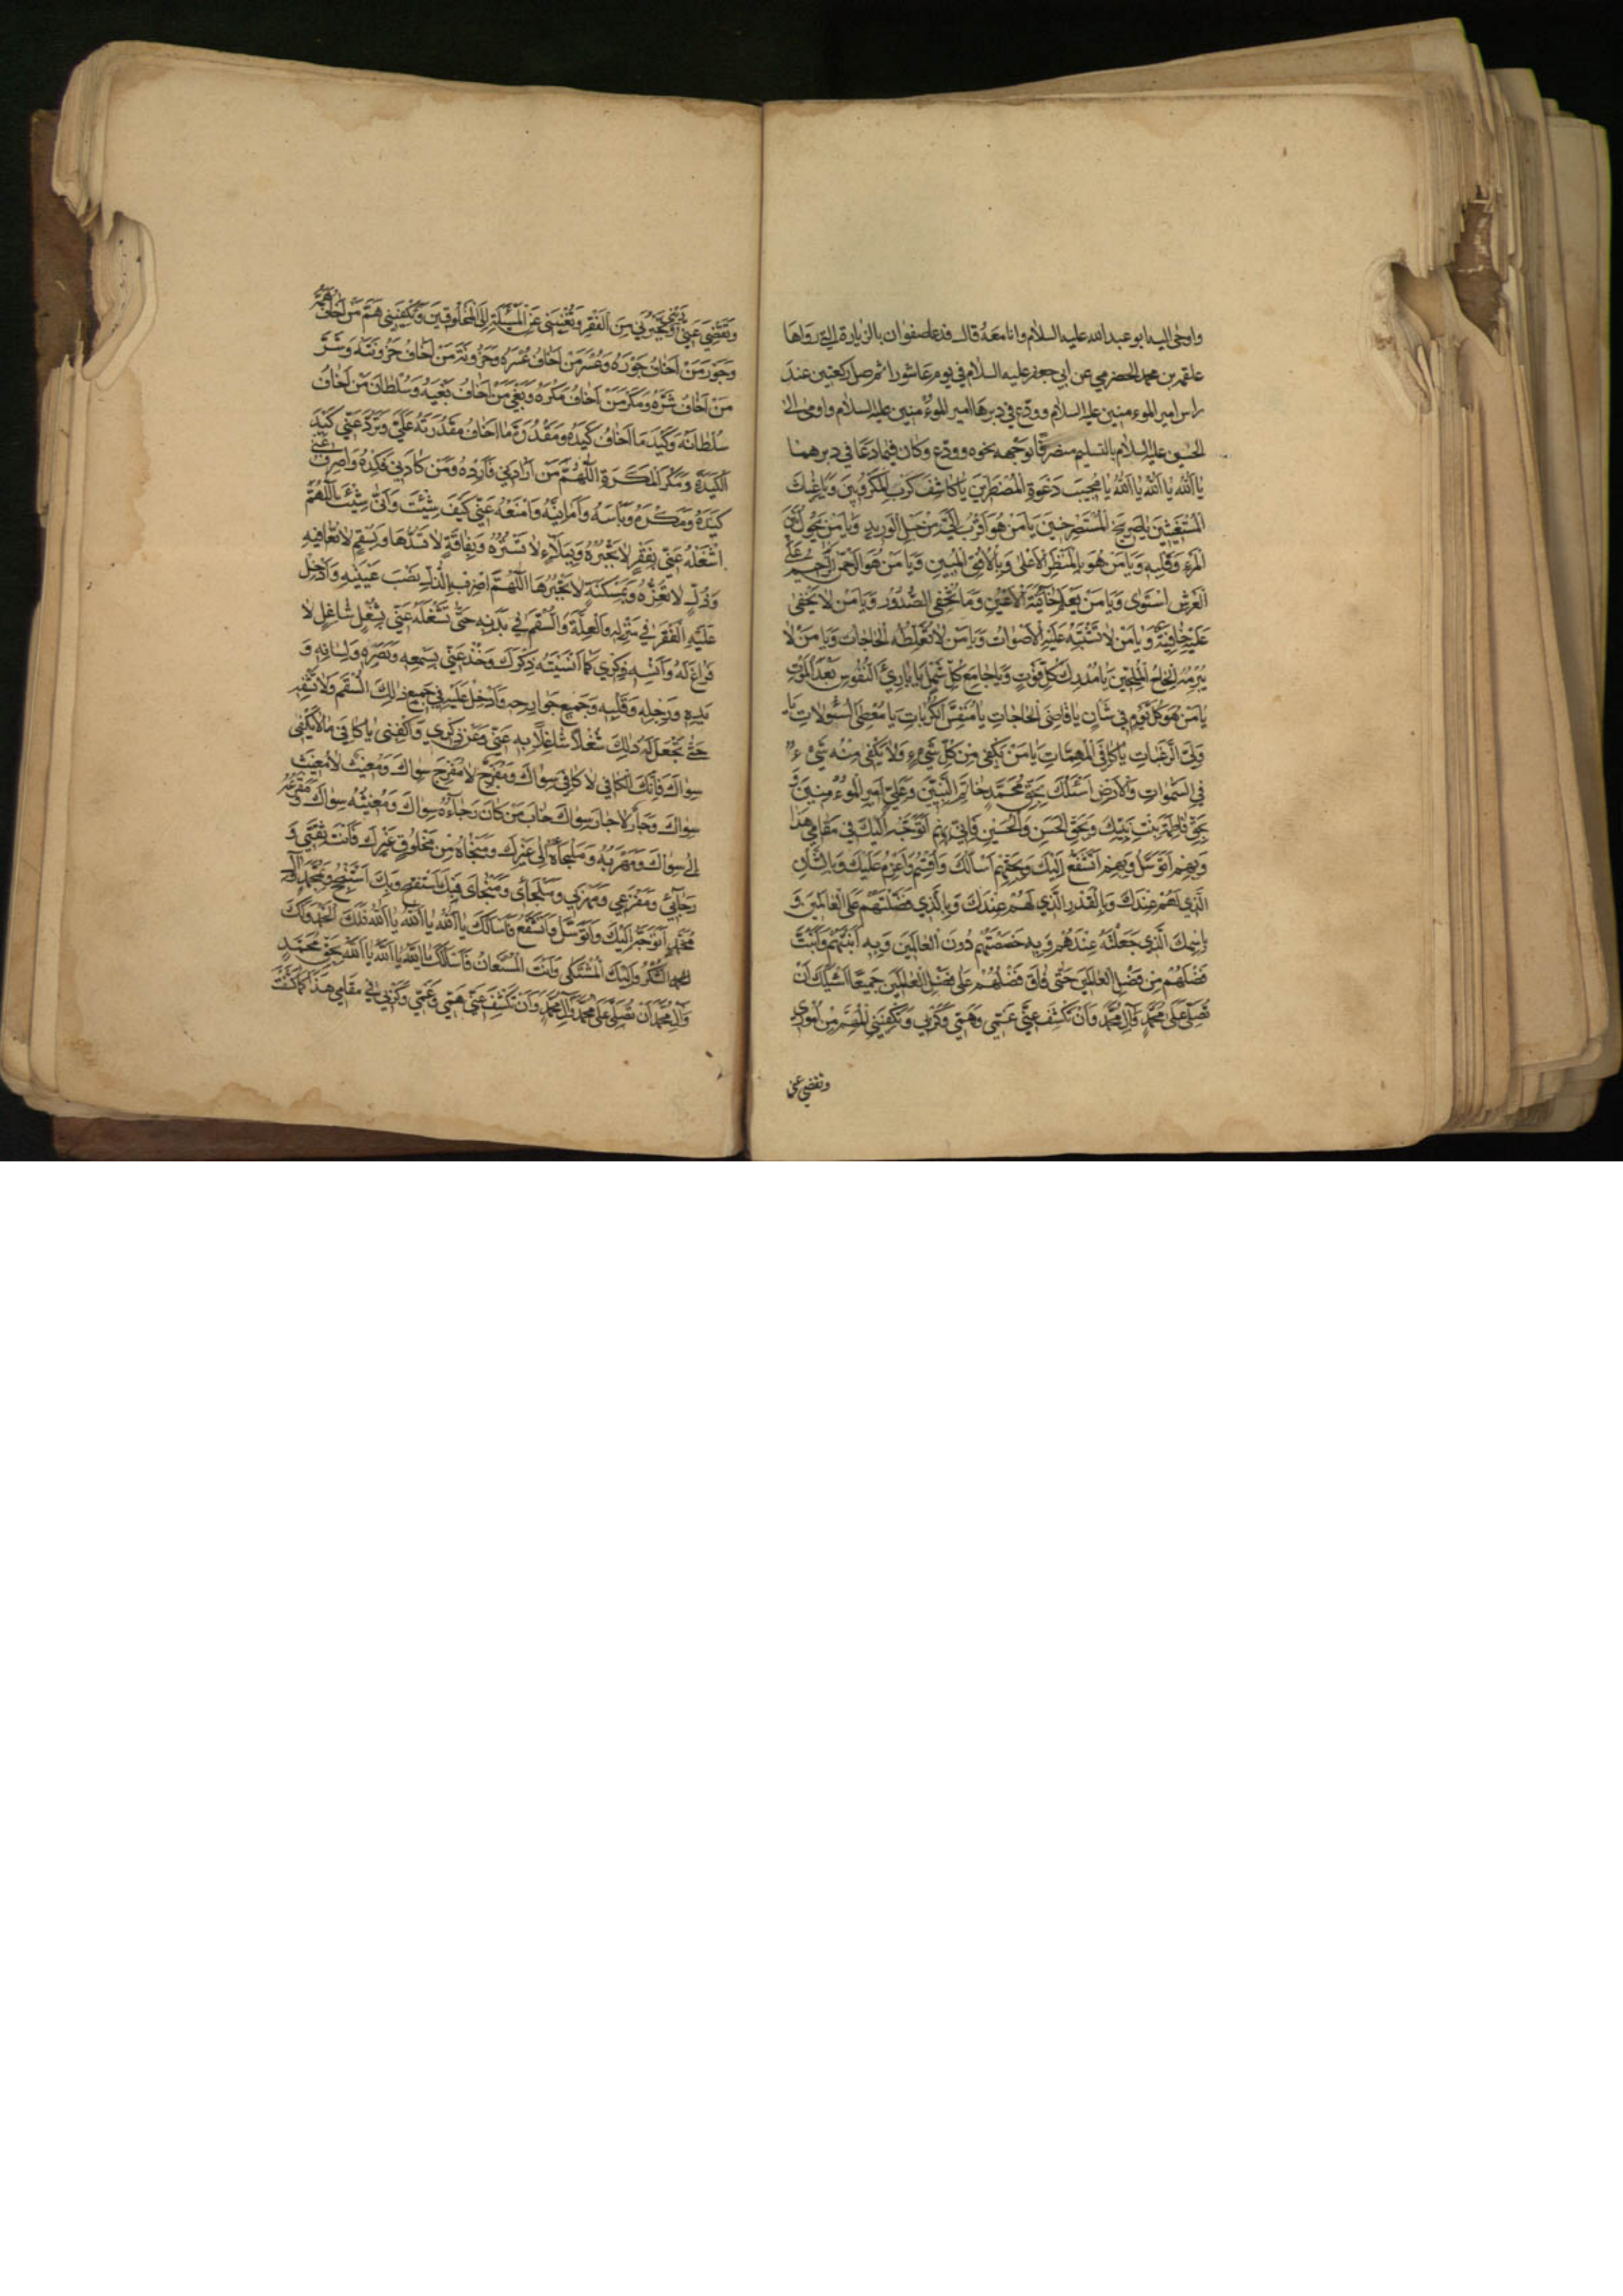 واومى اليه ابو عبد الله عليه السلام وانا معه قال فدعا صفوان بالزيارة التي رواها
علقمه بن محمد الحضرمي عن ابي جعفر عليه السلام في يوم عاشورا ثم صلى ركعتين عند
راس امير الموءمنين عليه السلام وودع في دبرها امير الموءمنين عليه السلام واومى الى
الحسين عليه السلام بالتسليم منصرفا بوجهه نحوه وودع وكان فيما دعا في دبرهما
يَا اَللهُ يَا اَللهُ يَا اَللهُ يَا مُجِيبَ دَعْوَةِ الْمُضْطَرِّينَ يَا كَاشِفَ كُرَبِ الْمَكْرُوبِينَ وَيَا غِيَاثَ
الْمُسْتَغِيثِينَ يَا صَرِيخَ الْمُسْتَصْرِخِينَ يَا مَنْ هُوَ اَقْرَبُ اِلَيَّ مِنْ حَبْلِ الْوَرِيدِ وَيَا مَنْ يَحُولُ بَيْنَ
الْمَرْءِ وَقَلْبِهِ وَيَا مَنْ هُوَ بِالْمَنْظَرِ الْاَعْلٰى وَبِالْاُفُقِ الْمُبِينِ وَيَا مَنْ هُوَ الرَّحْمٰنُ الرَّحِيمُ عَلَى
الْعَرْشِ اسْتَوٰى وَيَا مَنْ يَعْلَمُ خَآئِنَةَ الْاَعْيُنِ وَمَا تُخْفِي الصُّدُورُ وَيَا مَنْ لَا يَخْفٰى
عَلَيْهِ خَافِيَةٌ وَيَا مَنْ لَا تَشْتَبِهُ عَلَيْهِ الْاَصْوَاتُ وَيَا مَنْ لَا تُغَلِّطُهُ الْحَاجَاتُ وَيَا مَنْ لَا
يُبْرِمُهُ اِلْحَاحُ الْمُلِحِّينَ يَا مُدْرِكَ كُلِّ فَوْتٍ وَيَا جَامِعَ كُلِّ شَمْلٍ يَا بَارِئَ النُّفُوسِ بَعْدَ الْمَوْتِ
يَا مَنْ هُوَ كُلَّ يَوْمٍ فِي شَاْنٍ يَا قَاضِيَ الْحَاجَاتِ يَا مُنَفِّسَ الْكُرُبَاتِ يَا مُعْطِيَ السُّؤُلَاتِ يَا
وَلِيَّ الرَّغَبَاتِ يَا كَافِيَ الْمُهِمَّاتِ يَا مَنْ يَكْفِي مِنْ كُلِّ شَيْءٍ وَلَا يَكْفِي مِنْهُ شَيْءٌ
فِي السَّمٰوَاتِ وَالْاَرْضِ اَسْئَلُكَ بِحَقِّ مُحَمَّدٍ خَاتَمِ النَّبِيِّينَ وَعَلِيٍّ اَمِيرِ الْمُوءْمِنِينَ وَ
بِحَقِّ فَاطِمَةَ بِنْتِ نَبِيِّكَ وَبِحَقِّ الْحَسَنِ وَالْحُسَيْنِ فَاِنِّي بِهِمْ اَتَوَجَّهُ اِلَيْكَ فِي مَقَامِي هٰذَا
وَبِهِمْ اَتَوَسَّلُ وَبِهِمْ اَتَشَفَّعُ اِلَيْكَ وَبِحَقِّهِمْ اَسْاَلُكَ وَاُقْسِمُ وَاَعْزِمُ عَلَيْكَ وَبِالشَّاْنِ
الَّذِي لَهُمْ عِنْدَكَ وَبِالْقَدْرِ الَّذِي لَهُمْ عِنْدَكَ وَبِالَّذِي فَضَّلْتَهُمْ عَلَى الْعَالَمِينَ وَ
بِاسْمِكَ الَّذِي جَعَلْتَهُ عِنْدَهُمْ وَبِهِ خَصَصْتَهُمْ دُونَ الْعَالَمِينَ وَبِهِ اَبَنْتَهُمْ وَاَبَنْتَ
فَضْلَهُمْ مِنْ فَضْلِ الْعَالَمِينَ حَتّٰى فَاقَ فَضْلُهُمْ عَلٰى فَضْلِ الْعَالَمِينَ جَمِيعًا اَسْئَلُكَ اَنْ
تُصَلِّيَ عَلٰى مُحَمَّدٍ وَآلِ مُحَمَّدٍ وَاَنْ تَكْشِفَ عَنِّي غَمِّي وَهَمِّي وَكَرْبِي وَتَكْفِيَنِي الْمُهِمَّ مِنْ اُمُورِي
وتقضي عني
وَتَقْضِيَ عَنِّي دَيْنِي وَتُجِيرَنِي مِنَ الْفَقْرِ وَتُغْنِيَنِي عَنِ الْمَسْئَلَةِ اِلَى الْمَخْلُوقِينَ وَتَكْفِيَنِي هَمَّ مَنْ اَخَافُ هَمَّهُ
وَجَوْرَ مَنْ اَخَافُ جَوْرَهُ وَعُسْرَ مَنْ اَخَافُ عُسْرَهُ وَحُزُونَةَ مَنْ اَخَافُ حُزُونَتَهُ وَشَرَّ
مَنْ اَخَافُ شَرَّهُ وَمَكْرَ مَنْ اَخَافُ مَكْرَهُ وَبَغْيَ مَنْ اَخَافُ بَغْيَهُ وَسُلْطَانَ مَنْ اَخَافُ
سُلْطَانَهُ وَكَيْدَ مَا اَخَافُ كَيْدَهُ وَمَقْدُرَةَ مَا اَخَافُ مَقْدُرَتَهُ عَلَيَّ وَتَرُدَّ عَنِّي كَيْدَ
الْكَيَدَةِ وَمَكْرَ الْمَكَرَةِ اَللّٰهُمَّ مَنْ اَرَادَنِي فَاَرِدْهُ وَمَنْ كَادَنِي فَكِدْهُ وَاصْرِفْ عَنِّي
كَيْدَهُ وَمَكْرَهُ وَبَاْسَهُ وَاَمَانِيَّهُ وَامْنَعْهُ عَنِّي كَيْفَ شِئْتَ وَاَنّٰى شِئْتَ اَللّٰهُمَّ
اشْغَلْهُ عَنِّي بِفَقْرٍ لَا تَجْبُرُهُ وَبِبَلَآءٍ لَا تَسْتُرُهُ وَبِفَاقَةٍ لَا تَسُدُّهَا وَبِسُقْمٍ لَا تُعَافِيهِ
وَذُلٍّ لَا تُعِزُّهُ وَبِمَسْكَنَةٍ لَا تَجْبُرُهَا اَللّٰهُمَّ اضْرِبْ بِالذُّلِّ نَصْبَ عَيْنَيْهِ وَاَدْخِلْ
عَلَيْهِ الْفَقْرَ فِي مَنْزِلِهِ وَالْعِلَّةَ وَالسُّقْمَ فِي بَدَنِهِ حَتّٰى تَشْغَلَهُ عَنِّي بِشُغْلٍ شَاغِلٍ لَا
فَرَاغَ لَهُ وَاَنْسِهِ ذِكْرِي كَمَا اَنْسَيْتَهُ ذِكْرَكَ وَخُذْ عَنِّي بِسَمْعِهِ وَبَصَرِهِ وَلِسَانِهِ وَ
يَدِهِ وَرِجْلِهِ وَقَلْبِهِ وَجَمِيعِ جَوَارِحِهِ وَاَدْخِلْ عَلَيْهِ فِي جَمِيعِ ذٰلِكَ السُّقْمَ وَلَا تَشْفِهِ
حَتّٰى تَجْعَلَ لَهُ ذٰلِكَ شُغْلًا شَاغِلًا بِهِ عَنِّي وَعَنْ ذِكْرِي وَاكْفِنِي يَا كَافِيَ مَا لَا يَكْفِي
سِوَاكَ فَاِنَّكَ الْكَافِي لَا كَافِيَ سِوَاكَ وَمُفَرِّجٌ لَا مُفَرِّجَ سِوَاكَ وَمُغِيثٌ لَا مُغِيثَ
سِوَاكَ وَجَارٌ لَا جَارَ سِوَاكَ خَابَ مَنْ كَانَ رَجَآءُهُ سِوَاكَ وَمُغِيثُهُ سِوَاكَ وَمَفْزَعُهُ
اِلٰى سِوَاكَ وَمَهْرَبُهُ وَمَلْجَاُهُ اِلٰى غَيْرِكَ وَمَنْجَاهُ مِنْ مَخْلُوقٍ غَيْرِكَ فَاَنْتَ ثِقَتِي وَ
رَجَآئِي وَمَفْزَعِي وَمَهْرَبِي وَمَلْجَاىَ وَمَنْجَاىَ فَبِكَ اَسْتَفْتِحُ وَبِكَ اَسْتَنْجِحُ وَبِمُحَمَّدٍ وَآلِ
مُحَمَّدٍ اَتَوَجَّهُ اِلَيْكَ وَاَتَوَسَّلُ وَاَتَشَفَّعُ فَاَسْاَلُكَ يَا اَللهُ يَا اَللهُ يَا اَللهُ فَلَكَ الْحَمْدُ وَلَكَ
الشُّكْرُ وَاِلَيْكَ الْمُشْتَكٰى وَاَنْتَ الْمُسْتَعَانُ فَاَسْئَلُكَ يَا اَللهُ يَا اَللهُ يَا اَللهُ بِحَقِّ مُحَمَّدٍ
وَآلِ مُحَمَّدٍ اَنْ تُصَلِّيَ عَلٰى مُحَمَّدٍ وَآلِ مُحَمَّدٍ وَاَنْ تَكْشِفَ عَنِّي هَمِّي وَغَمِّي وَكَرْبِي فِي مَقَامِي هٰذَا كَمَا كَشَفْتَ